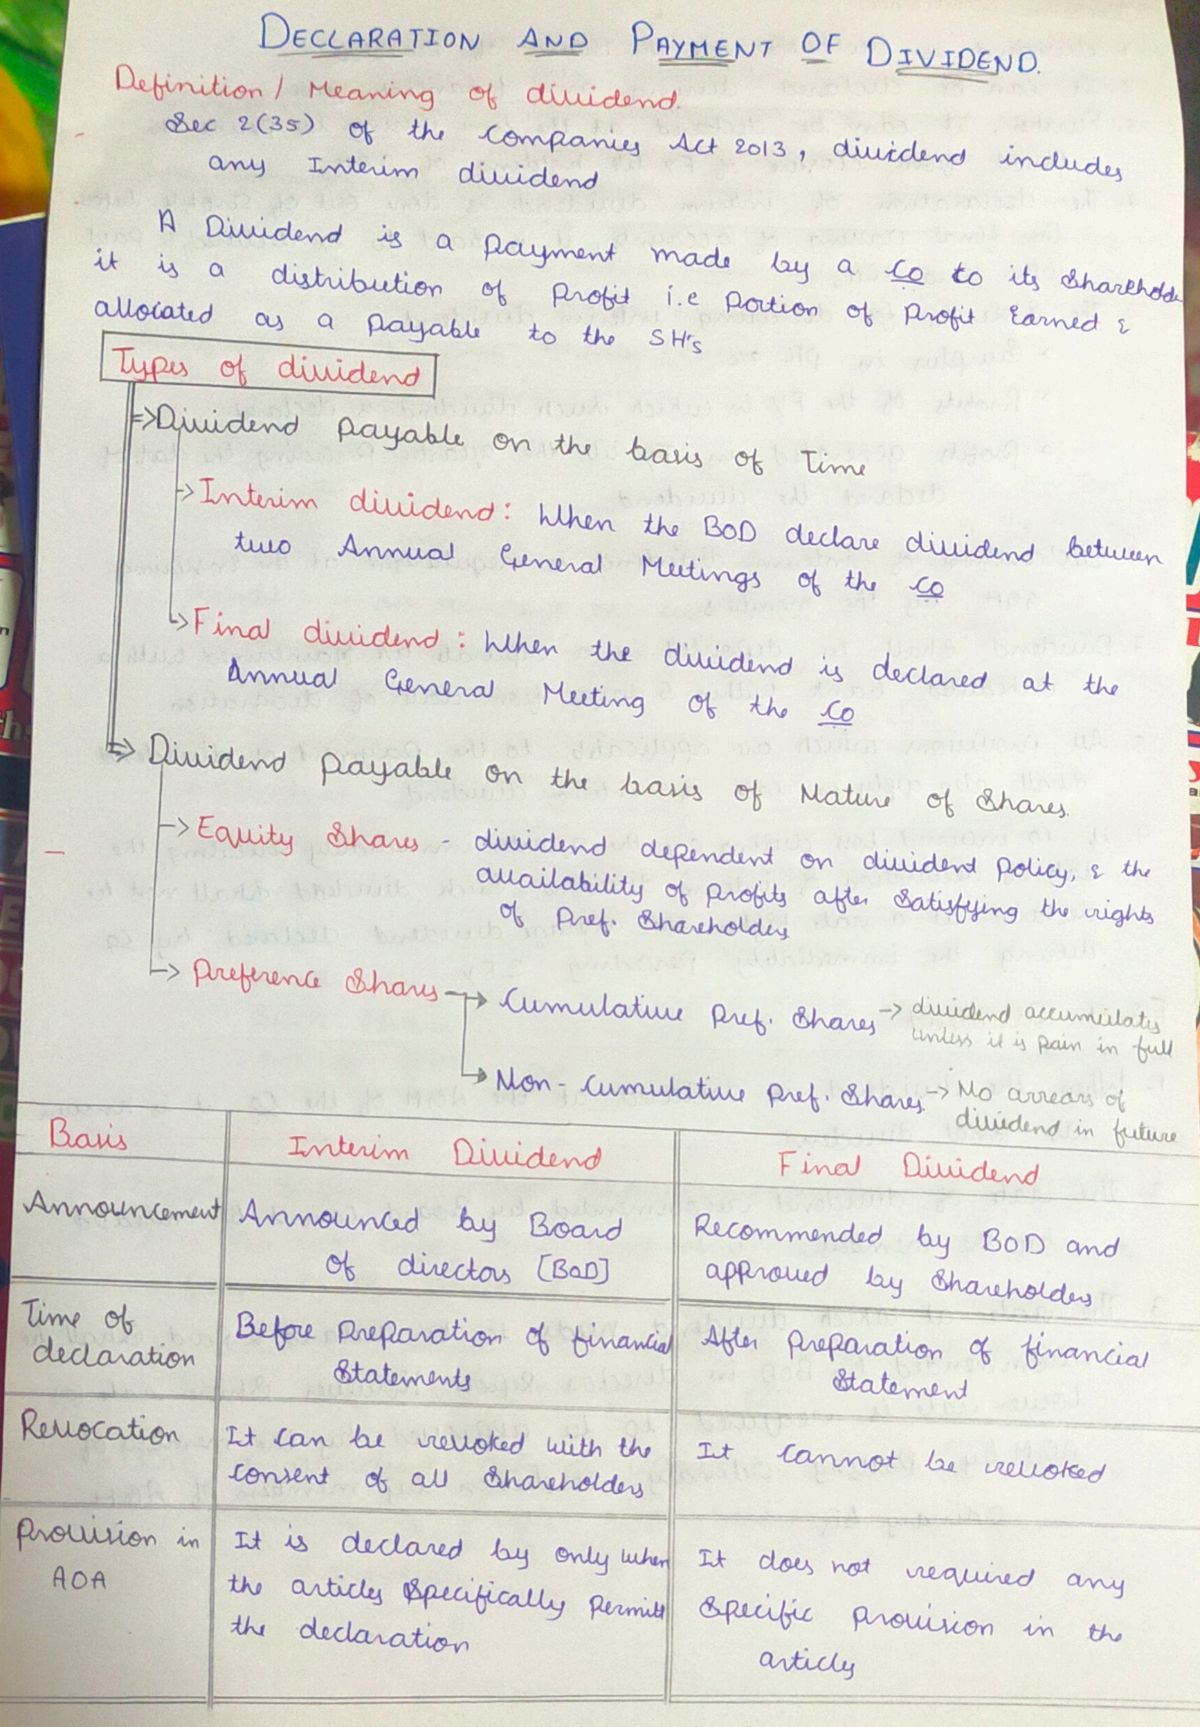 DECLARATION AND PAYMENT OF DIVIDEND.
Definition / Meaning of dividend.
Sec 2(35) of the Companies Act 2013, dividend includes
any Interim dividend
A Dividend is a payment made by a Co to its Sharehold
it is a distribution of Profit i.e Portion of Profit Earned &
allocated as a payable to the SH's
Types of dividend
=> Dividend payable on the basis of Time
-> Interim dividend: When the BOD declare dividend between
two Annual General Meetings of the Co
-> Final dividend: When the dividend is declared at the
Annual General Meeting of the Co
=> Dividend payable on the basis of Nature of Shares.
-> Equity Shares - dividend dependent on dividend Policy, & the
availability of Profits after Satisfying the rights
of Pref. Shareholders
-> Preference Shares -> Cumulative Pref. Shares -> dividend accumulates
unless it is pain in full
-> Non-Cumulative Pref. Shares. -> No arrears of
dividend in future
Basis Interim Dividend Final Dividend
Announcement Announced by Board Recommended by BOD and
of directors [BOD] approved by Shareholders
Time of Before Preparation of financial After Preparation of financial
declaration Statements Statement
Revocation It can be revoked with the It cannot be revoked
Consent of all Shareholders
Provision in It is declared by only when It does not required any
AOA the articles Specifically Permits Specific Provision in the
the declaration articles